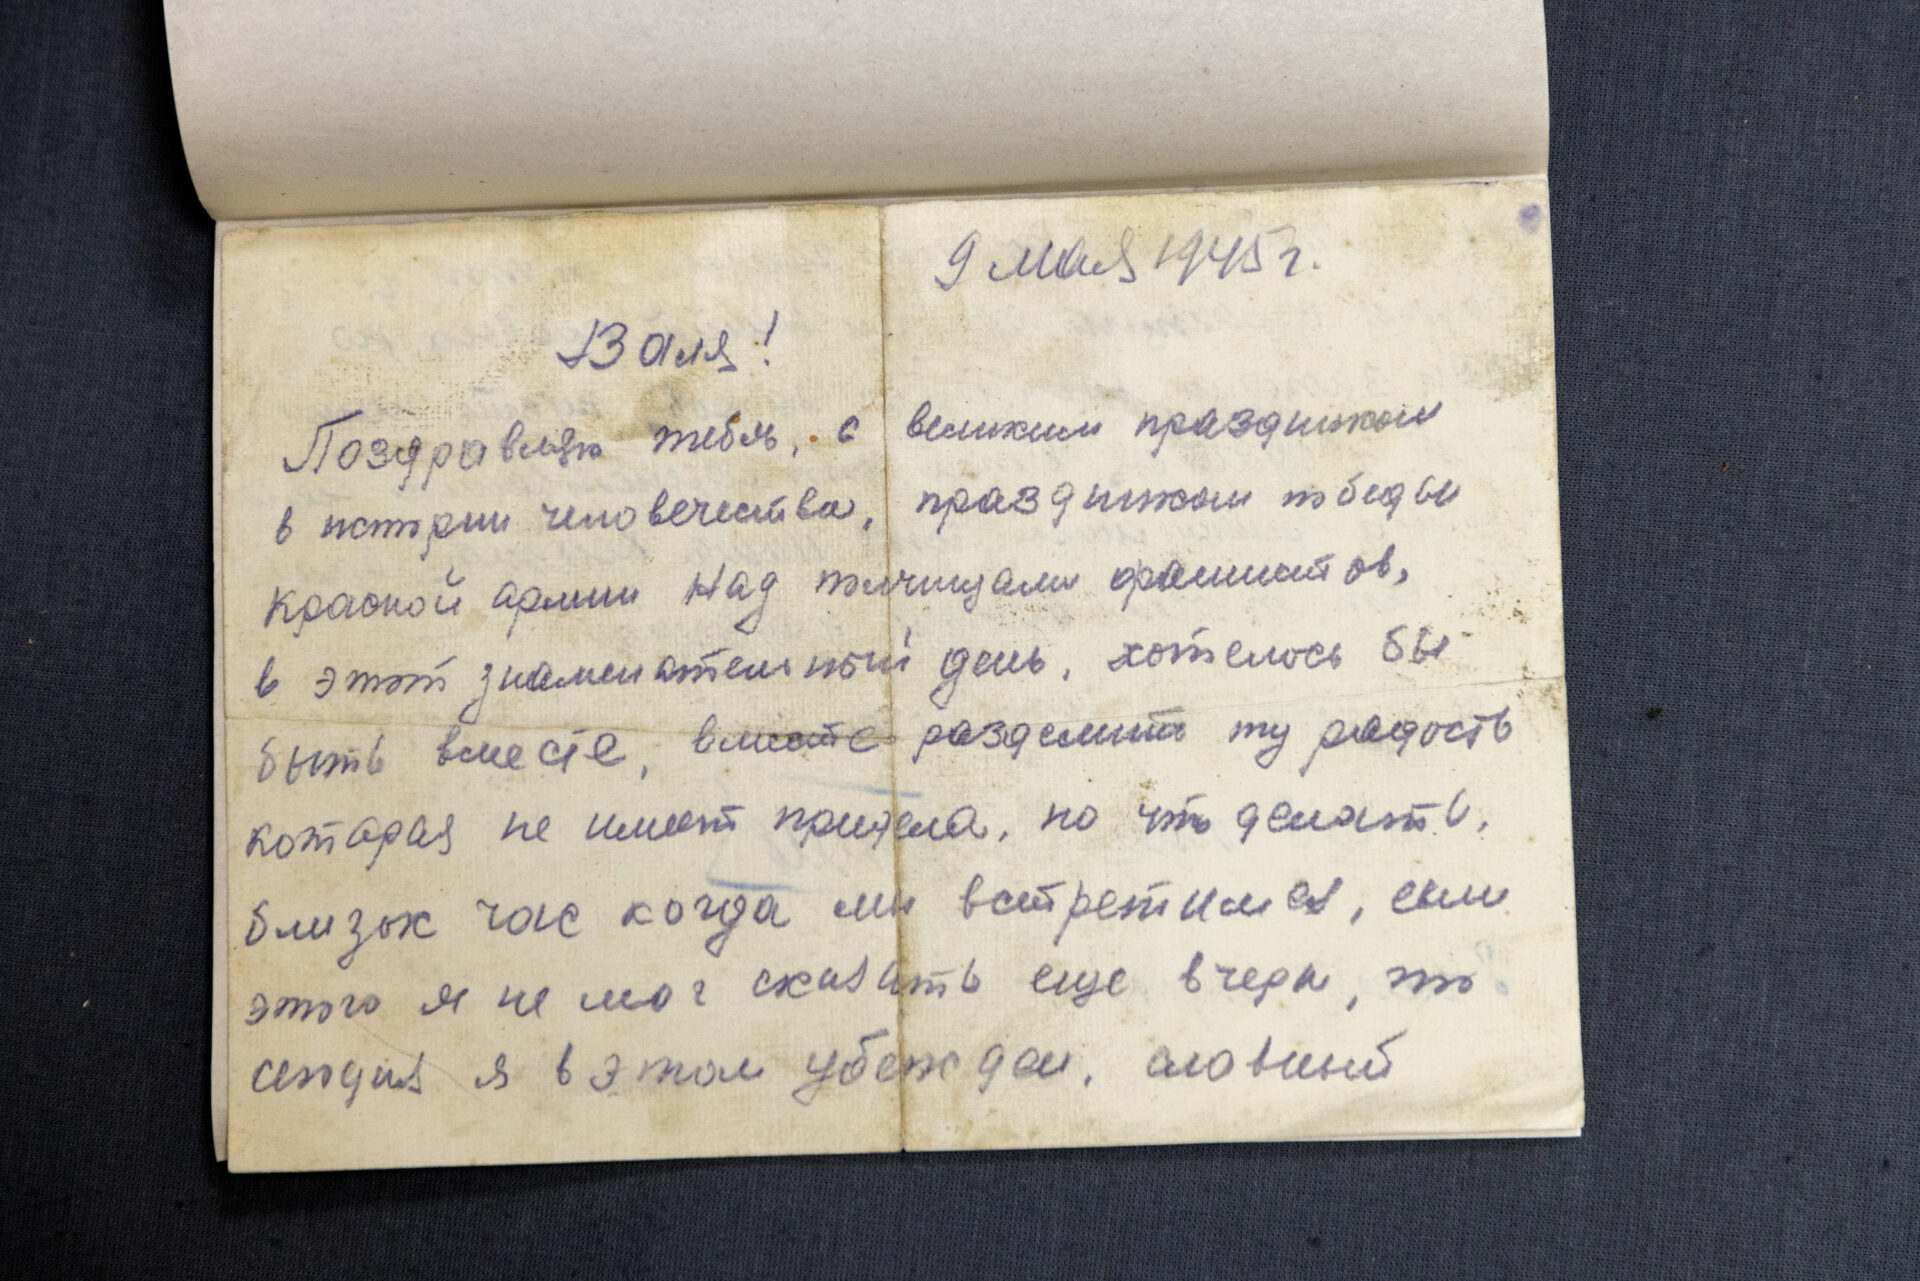 9 мая 1945 г.
Валя!
Поздравляю тебя, с великим праздником
в истории человечества, праздником победы
красной армии над полчищами фашистов,
в этот знаменательный день, хотелось бы
быть вместе, вместе разделить ту радость
которая не имеет придела, но что делать,
близок час когда мы встретимся, если
этого я не мог сказать еще вчера, то
сегодня я в этом убежден, славный